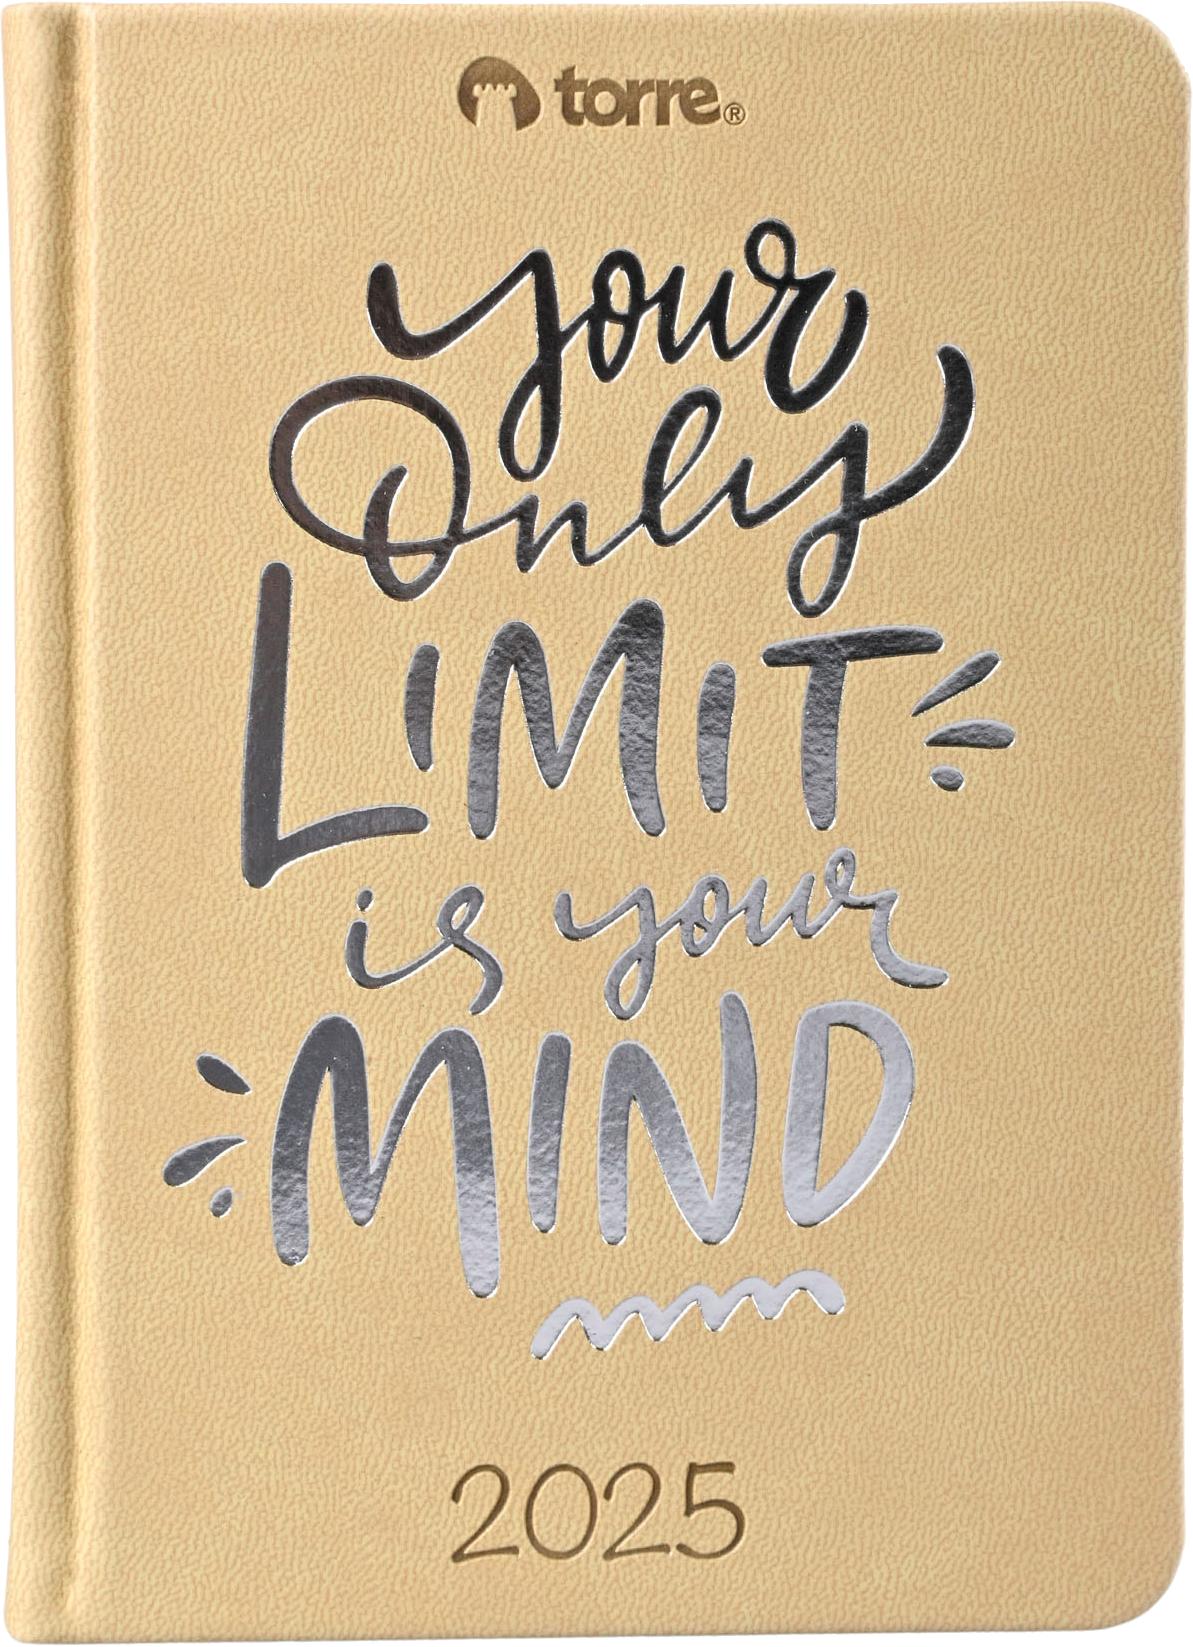 torre®
your
Only
LIMIT
is your
MIND
2025